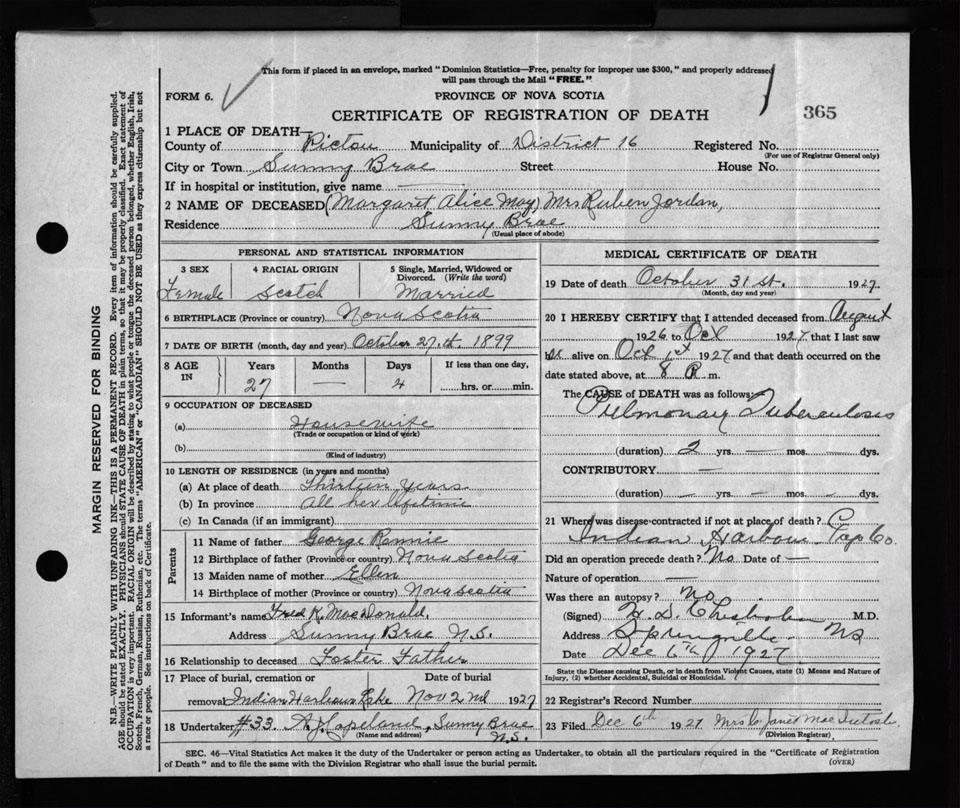 This form if placed in an envelope, marked "Dominion Statistics—Free, penalty for improper use $300," and properly addressed
will pass through the Mail "FREE."
FORM 6.
PROVINCE OF NOVA SCOTIA
CERTIFICATE OF REGISTRATION OF DEATH
365
1 PLACE OF DEATH—
County of Pictou Municipality of District 16 Registered No.
(For use of Registrar General only)
City or Town Sunny Brae Street House No.
If in hospital or institution, give name —
2 NAME OF DECEASED (Margaret Alice May) Mrs Ruben Jordan,
Residence Sunny Brae
(Usual place of abode)
PERSONAL AND STATISTICAL INFORMATION
3 SEX 4 RACIAL ORIGIN 5 Single, Married, Widowed or
Divorced. (Write the word)
Female Scotch Married
6 BIRTHPLACE (Province or country) Nova Scotia
7 DATE OF BIRTH (month, day and year) October 27th 1899
8 AGE IN Years Months Days If less than one day,
27 — 4 hrs. or min.
9 OCCUPATION OF DECEASED
(a) Housewife
(Trade or occupation or kind of work)
(b)
(Kind of industry)
10 LENGTH OF RESIDENCE (in years and months)
(a) At place of death Thirteen Years
(b) In province All her lifetime
(c) In Canada (if an immigrant)
Parents
11 Name of father George Rennie
12 Birthplace of father (Province or country) Nova Scotia
13 Maiden name of mother Ellen
14 Birthplace of mother (Province or country) Nova Scotia
15 Informant's name Fred K. MacDonald,
Address Sunny Brae N.S.
16 Relationship to deceased Foster Father
17 Place of burial, cremation or Date of burial
removal Indian Harbour Lake Nov 2nd 1927
18 Undertaker #33. A J Copeland, Sunny Brae
(Name and address) N.S.
MEDICAL CERTIFICATE OF DEATH
19 Date of death October 31st. 1927.
(Month, day and year)
20 I HEREBY CERTIFY that I attended deceased from August
1926 to Oct 1927 that I last saw
her alive on Oct 1st 1927 and that death occurred on the
date stated above, at 8 P. m.
The CAUSE of DEATH was as follows:
Pulmonary Tuberculosis
(duration) 2 yrs. — mos. — dys.
CONTRIBUTORY —
(duration) — yrs. — mos. — dys.
21 Where was disease contracted if not at place of death?
Indian Harbour Co.
Did an operation precede death? No Date of —
Nature of operation —
Was there an autopsy? No
(Signed) H. D. Chisholm M.D.
Address Springville NS
Date Dec 6th 1927
State the Disease causing Death, or in death from Violent Causes, state (1) Means and Nature of
Injury, (2) whether Accidental, Suicidal or Homicidal.
22 Registrar's Record Number
23 Filed Dec 6th 1927 Mrs C. Janet MacIntosh
(Division Registrar)
SEC. 46—Vital Statistics Act makes it the duty of the Undertaker or person acting as Undertaker, to obtain all the particulars required in the "Certificate of Registration
of Death" and to file the same with the Division Registrar who shall issue the burial permit.
(OVER)
MARGIN RESERVED FOR BINDING
N.B.—WRITE PLAINLY WITH UNFADING INK—THIS IS A PERMANENT RECORD. Every item of information should be carefully supplied.
AGE should be stated EXACTLY. PHYSICIANS should STATE CAUSE OF DEATH in plain terms, so that it may be properly classified. Exact statement of
OCCUPATION is very important. RACIAL ORIGIN will be described by stating to what people or tongue the deceased person belonged, whether English, Irish,
Scotch, French, German, Russian, Ruthenian, etc. The terms "AMERICAN" or "CANADIAN" SHOULD NOT BE USED as they express citizenship but not
a race or people. See instructions on back of Certificate.